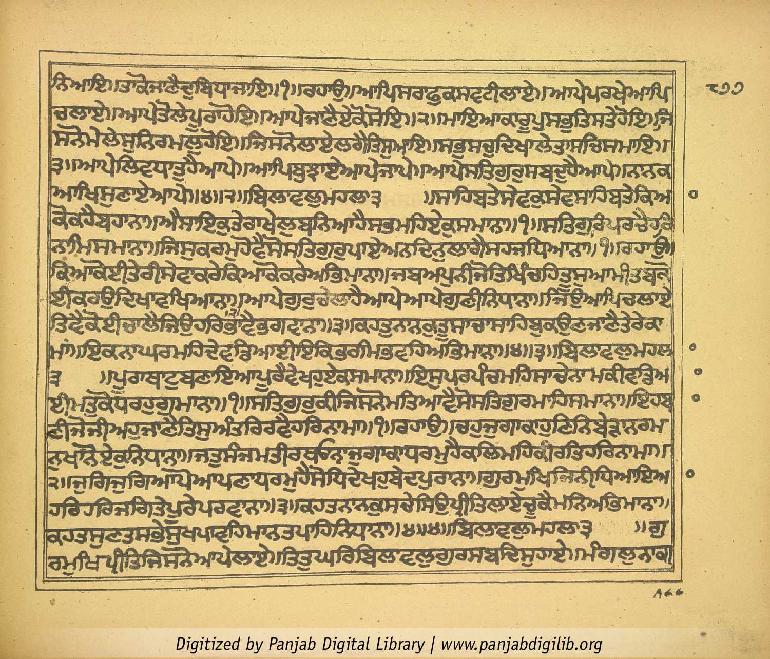 ਨਿਆਇ॥ਤਾਕੋਜਾਣੈਦੁਬਿਧਾਜਾਇ॥੧॥ਰਹਾਉ॥ਆਪਿਸਰਾਫੁਕਸਵਟੀਲਾਏ॥ਆਪੇਪਰਖੇਆਪਿ ੮੭੭
ਚਲਾਏ॥ਆਪੇਤੋਲੇਪੂਰਾਹੋਇ॥ਆਪੇਜਾਣੈਏਕੋਸੋਇ॥੨॥ਮਾਇਆਕਾਰੂਪੁਸਭੁਤਿਸਤੇਹੋਇ॥ਜਿ
ਸਨੋਮੇਲੇਸੁਨਿਰਮਲੁਹੋਇ॥ਜਿਸਨੋਲਾਏਲਗੈਤਿਸੁਆਇ॥ਸਭੁਸਚੁਦਿਖਾਲੇਤਾਸਚਿਸਮਾਇ॥
੩॥ਆਪੇਲਿਵਧਾਤੁਹੈਆਪੇ॥ਆਪਿਬੁਝਾਏਆਪੇਜਾਪੇ॥ਆਪੇਸਤਿਗੁਰੁਸਬਦੁਹੈਆਪੇ॥ਨਾਨਕ
ਆਖਿਸੁਣਾਏਆਪੇ॥੪॥੨॥ਬਿਲਾਵਲੁਮਹਲਾ੩ ॥ਸਾਹਿਬਤੇਸੇਵਕੁਸੇਵਸਾਹਿਬਤੇਕਿਆ
ਕੋਕਹੈਬਹਾਨਾ॥ਐਸਾਇਕੁਤੇਰਾਖੇਲੁਬਨਿਆਹੈਸਭਮਹਿਏਕੁਸਮਾਨਾ॥੧॥ਸਤਿਗੁਰਿਪਰਚੈਹਰਿ
ਨਾਮਿਸਮਾਨਾ॥ਜਿਸੁਕਰਮੁਹੋਵੈਸੋਸਤਿਗੁਰੁਪਾਏਅਨਦਿਨੁਲਾਗੈਸਹਜਧਿਆਨਾ॥੧॥ਰਹਾਉ॥
ਕਿਆਕੋਈਤੇਰੀਸੇਵਾਕਰੇਕਿਆਕੋਕਰੇਅਭਿਮਾਨਾ॥ਜਬਅਪੁਨੀਜੋਤਿਖਿੰਚਹਿਤੂਸੁਆਮੀਤਬਕੋ
ਈਕਰਉਦਿਖਾਵਖਿਆਨਾ॥੨॥ਆਪੇਗੁਰੁਚੇਲਾਹੈਆਪੇਆਪੇਗੁਣੀਨਿਧਾਨਾ॥ਜਿਉਆਪਿਚਲਾਏ
ਤਿਵੈਕੋਈਚਾਲੈਜਿਉਹਰਿਭਾਵੈਭਗਵਾਨਾ॥੩॥ਕਹਤਨਾਨਕੁਤੂਸਾਚਾਸਾਹਿਬੁਕਉਣੁਜਾਣੈਤੇਰੇਕਾ
ਮਾਂ॥ਇਕਨਾਘਰਮਹਿਦੇਵਡਿਆਈਇਕਿਭਰਮਿਭਵਹਿਅਭਿਮਾਨਾ॥੪॥੩॥ਬਿਲਾਵਲੁਮਹਲਾ
੩ ॥ਪੂਰਾਥਾਟੁਬਣਾਇਆਪੂਰੈਵੇਖਹੁਏਕਸਮਾਨਾ॥ਇਸੁਪਰਪੰਚਮਹਿਸਾਚੇਨਾਮਕੀਵਡਿਆ
ਈਮਤੁਕੋਧਰਹੁਗੁਮਾਨਾ॥੧॥ਸਤਿਗੁਰਕੀਜਿਸਨੋਮਤਿਆਵੈਸੋਸਤਿਗੁਰਮਾਹਿਸਮਾਨਾ॥ਇਹਬਾ
ਣੀਜੋਜੀਅਹੁਜਾਣੈਤਿਸੁਅੰਤਰਿਰਵੈਹਰਿਨਾਮਾ॥੧॥ਰਹਾਉ॥ਚਹੁਜੁਗਾਕਾਹੁਣਿਨਿਬੇੜਾਨਰਮ
ਨੁਖਾਨੋਏਕੁਨਿਧਾਨਾ॥ਜਤੁਸੰਜਮਤੀਰਥਓਨਾਜੁਗਾਕਾਧਰਮੁਹੈਕਲਿਮਹਿਕੀਰਤਿਹਰਿਨਾਮਾ॥
੨॥ਜੁਗਿਜੁਗਿਆਪੋਆਪਣਾਧਰਮੁਹੈਸੋਧਿਦੇਖਹੁਬੇਦਪੁਰਾਨਾ॥ਗੁਰਮੁਖਿਜਿਨੀਧਿਆਇਆ
ਹਰਿਹਰਿਜਗਿਤੇਪੂਰੇਪਰਵਾਨਾ॥੩॥ਕਹਤਨਾਨਕੁਸਚੇਸਿਉਪ੍ਰੀਤਿਲਾਏਚੂਕੈਮਨਿਅਭਿਮਾਨਾ॥
ਕਹਤਸੁਣਤਸਭੇਸੁਖਪਾਵਹਿਮਾਨਤਪਾਹਿਨਿਧਾਨਾ॥੪॥੪॥ਬਿਲਾਵਲੁਮਹਲਾ੩ ॥ਗੁ
ਰਮੁਖਿਪ੍ਰੀਤਿਜਿਸਨੋਆਪੇਲਾਏ॥ਤਿਤੁਘਰਿਬਿਲਾਵਲੁਗੁਰਸਬਦਿਸੁਹਾਏ॥ਮੰਗਲੁਨਾਰੀ
Digitized by Panjab Digital Library | www.panjabdigilib.org